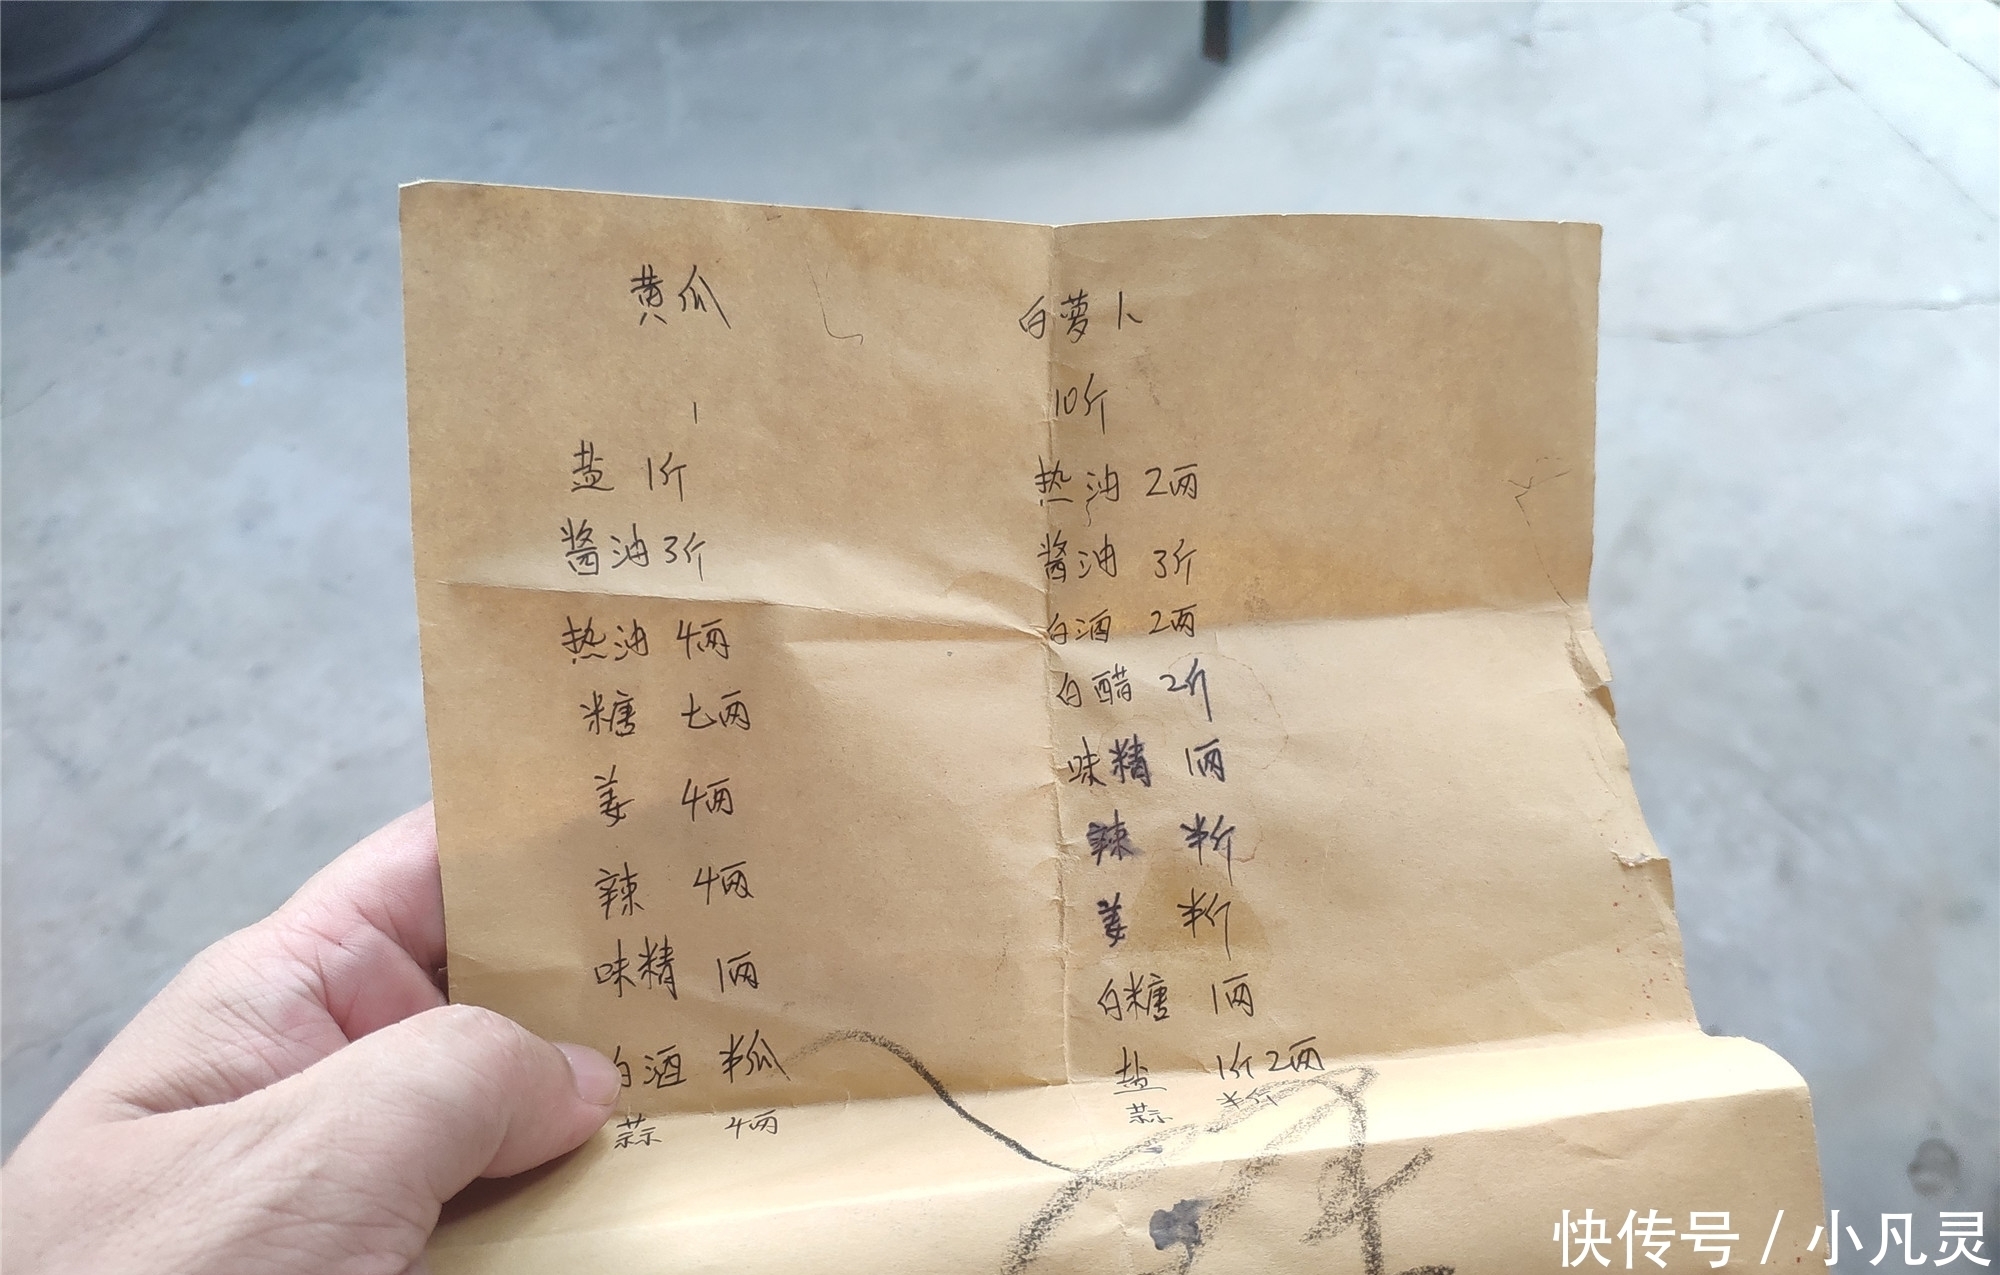 黄瓜
1
盐 1斤
酱油 3斤
热油 4两
糖 七两
姜 4两
辣 4两
味精 1两
白酒 半瓜
蒜 4两
白萝卜
10斤
热油 2两
酱油 3斤
白酒 2两
白醋 2斤
味精 1两
辣 半斤
姜 半斤
白糖 1两
盐 1斤2两
蒜 半斤
快传号 / 小凡灵